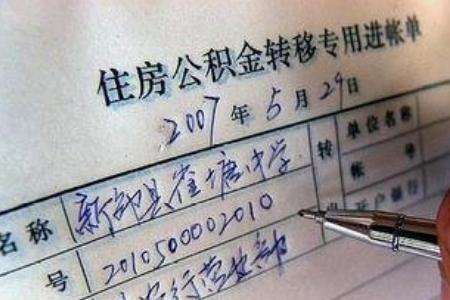 住房公积金转移专用进帐单
2007年5月29日
名称 新郑县雀塘中学 转 单位名称
号 2010500002010 帐号
行营业部 开户银行